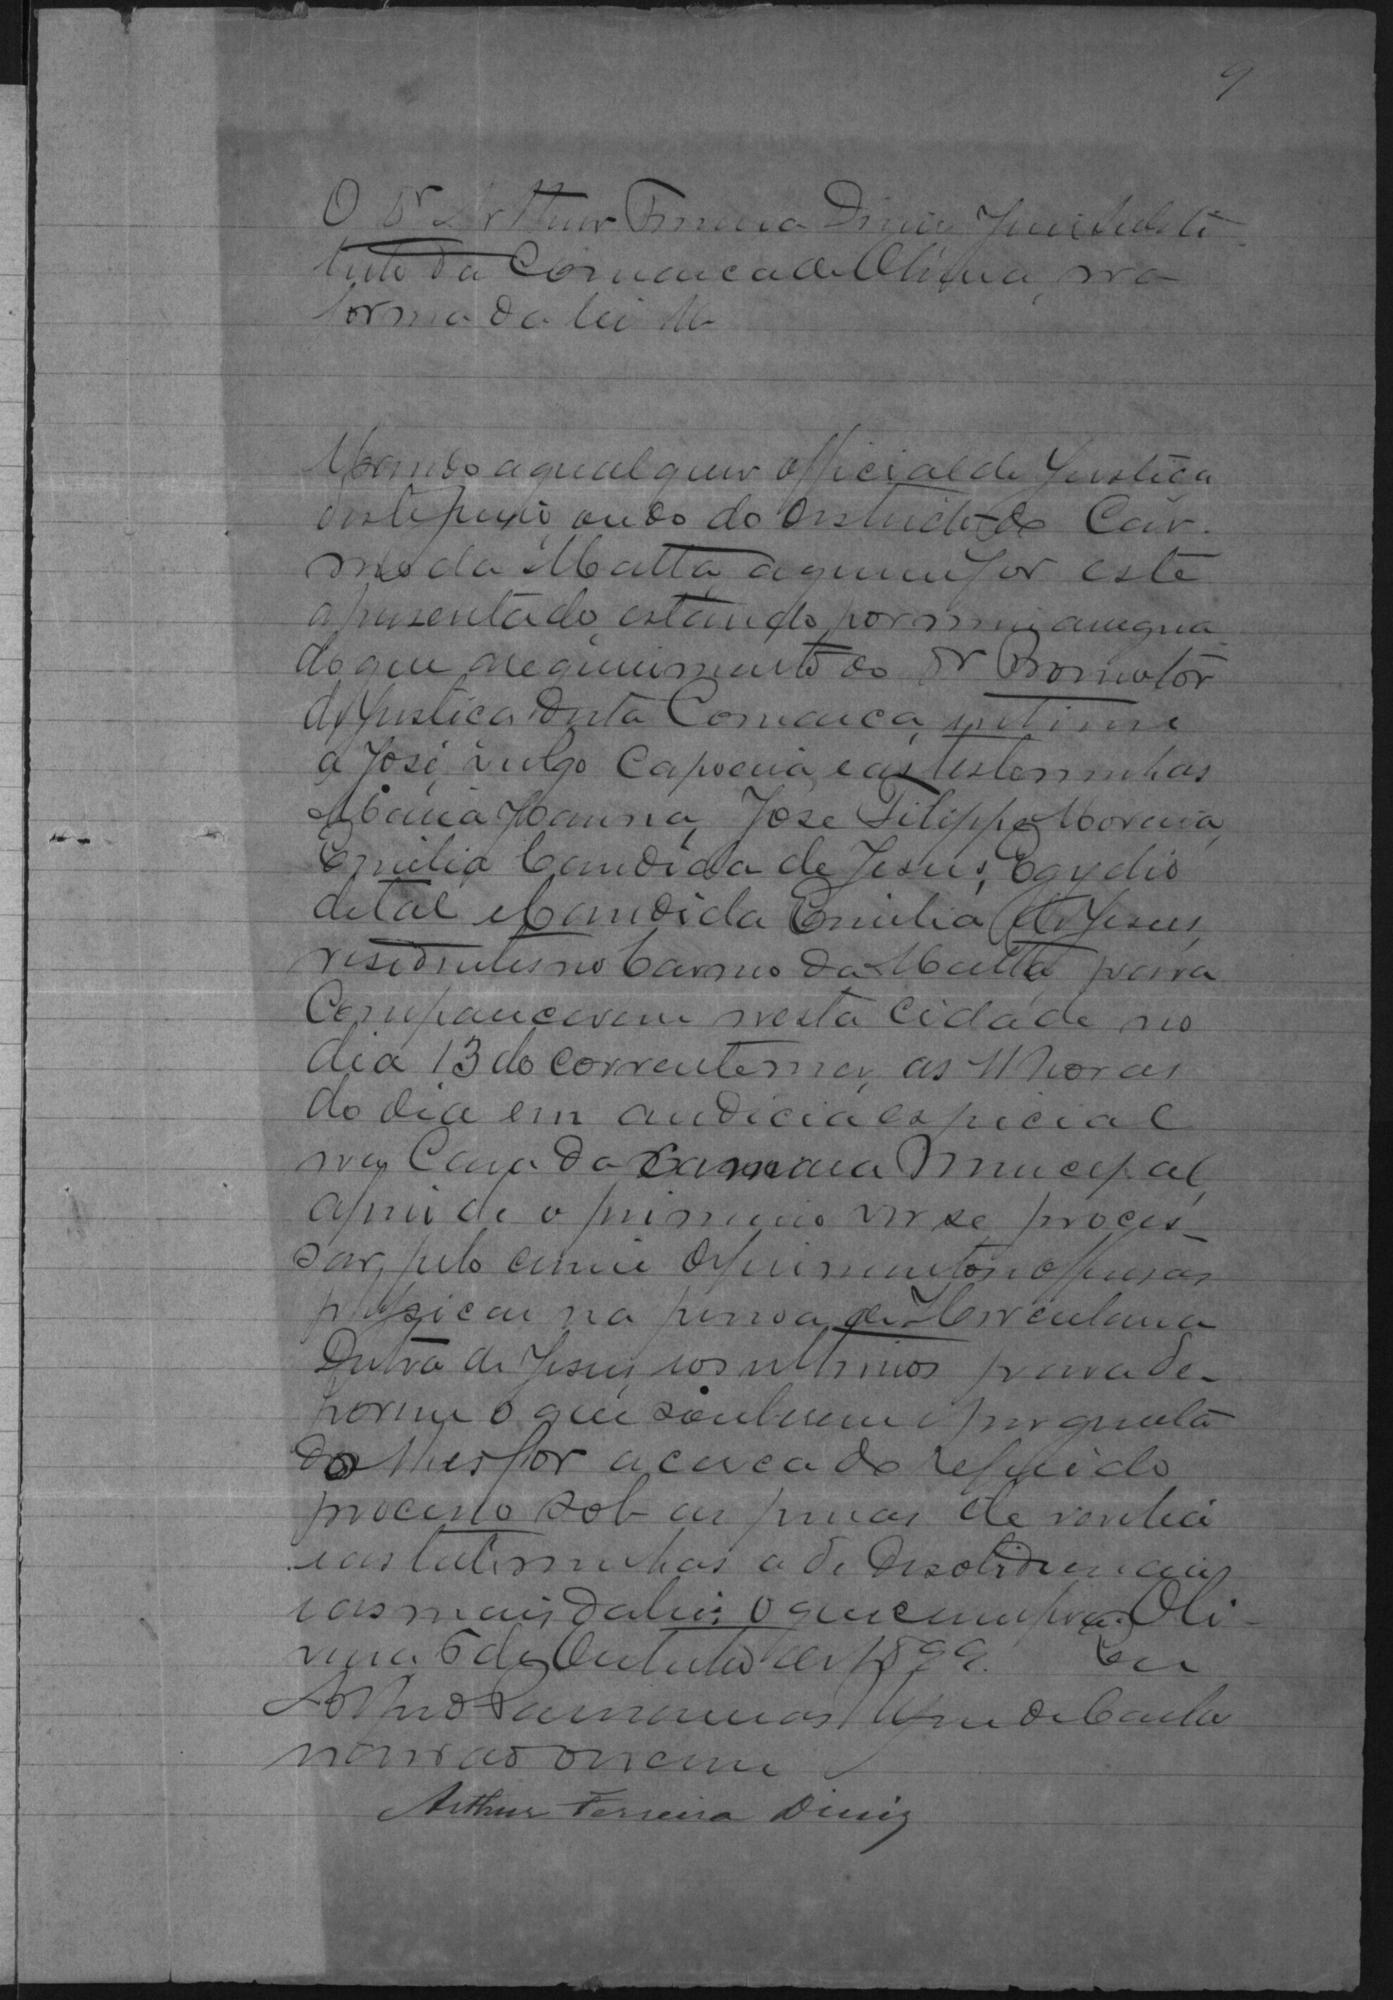 9
O Dr Arthur Ferreira Diniz Juiz Substi-
tuto da Comarca de Oliveira, na
forma da lei
Mando a qualquer official de Justiça
deste juizo, ou do do Districto do Car-
mo da Matta a quem for este
apresentado, estando por mim assegna
do que a requerimento do Dr Promotor
de Justiça desta Comarca, intime
a José, vulgo Capoeira, e as testeminhas
Maria Joanna, Jose Filippe Moreira,
Emilia Candida de Jesus, Egydio
de tal e Candida Emilia de Jesus,
residentes no Carmo da Matta para
Comparecerem nesta Cidade no
dia 13 do corrente mez, as 11 horas
do dia em audicia especial
na Casa da Camara Municipal,
afim de o primeiro ver se proces-
sar, pelo crime de ferimentos e offensas
physicas na pessoa de Herculana
Dutra de Jesus, e os ultimos para de-
porem o que souberem e pergunta
do lhes for acerca do referido
processo sob as penas de revelia
e as testeminhas a de desobidiencia
e as mais da lei: O que cumpra. Oli-
veira 6 de Outubro de 1899. Eu
de Castro
escrevi
Arthur Ferreira Diniz